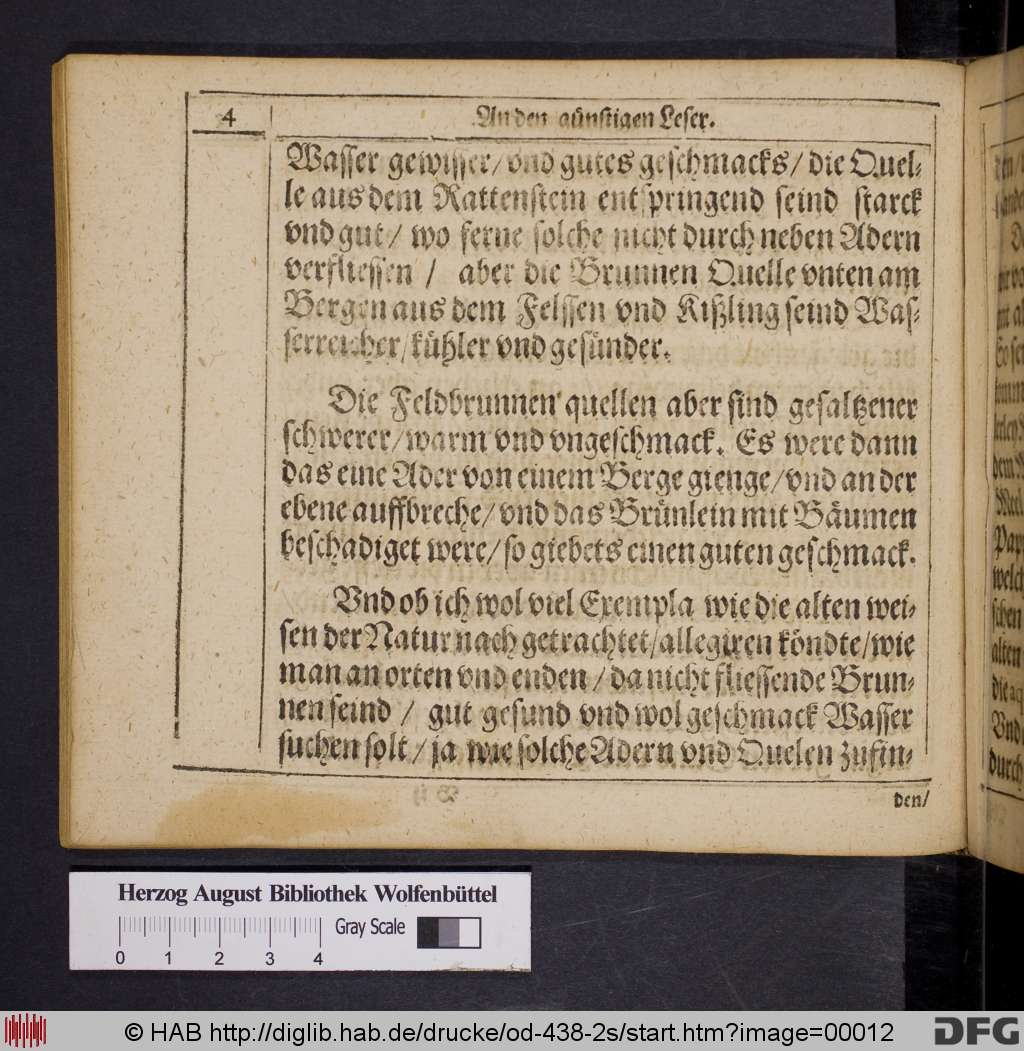 4
An den günstigen Leser.
Wasser gewisser/ vnd gutes geschmacks/ die Quel-
le aus dem Rattenstein entspringend seind starck
vnd gut/ wo ferne solche nicht durch neben Adern
verfliessen / aber die Brunnen Quelle vnten am
Bergen aus dem Felssen vnd Kißling seind Was-
serreicher/ kühler vnd gesünder.
Die Feldbrunnen quellen aber sind gesaltzener
schwerer/ warm vnd vngeschmack. Es were dann
das eine Ader von einem Berge gienge/ vnd an der
ebene auffbreche/ vnd das Brünlein mit Bäumen
beschadiget were/ so giebets einen guten geschmack.
Vnd ob ich wol viel Exempla wie die alten wei-
sen der Natur nach getrachtet/ allegiren köndte/ wie
man an orten vnd enden / da nicht fliessende Brun-
nen seind / gut gesund vnd wolgeschmack Wasser
suchen solt/ ja wie solche Adern vnd Quelen zufin-
den/
Herzog August Bibliothek Wolfenbüttel
Gray Scale
0 1 2 3 4
© HAB http://diglib.hab.de/drucke/od-438-2s/start.htm?image=00012
DFG